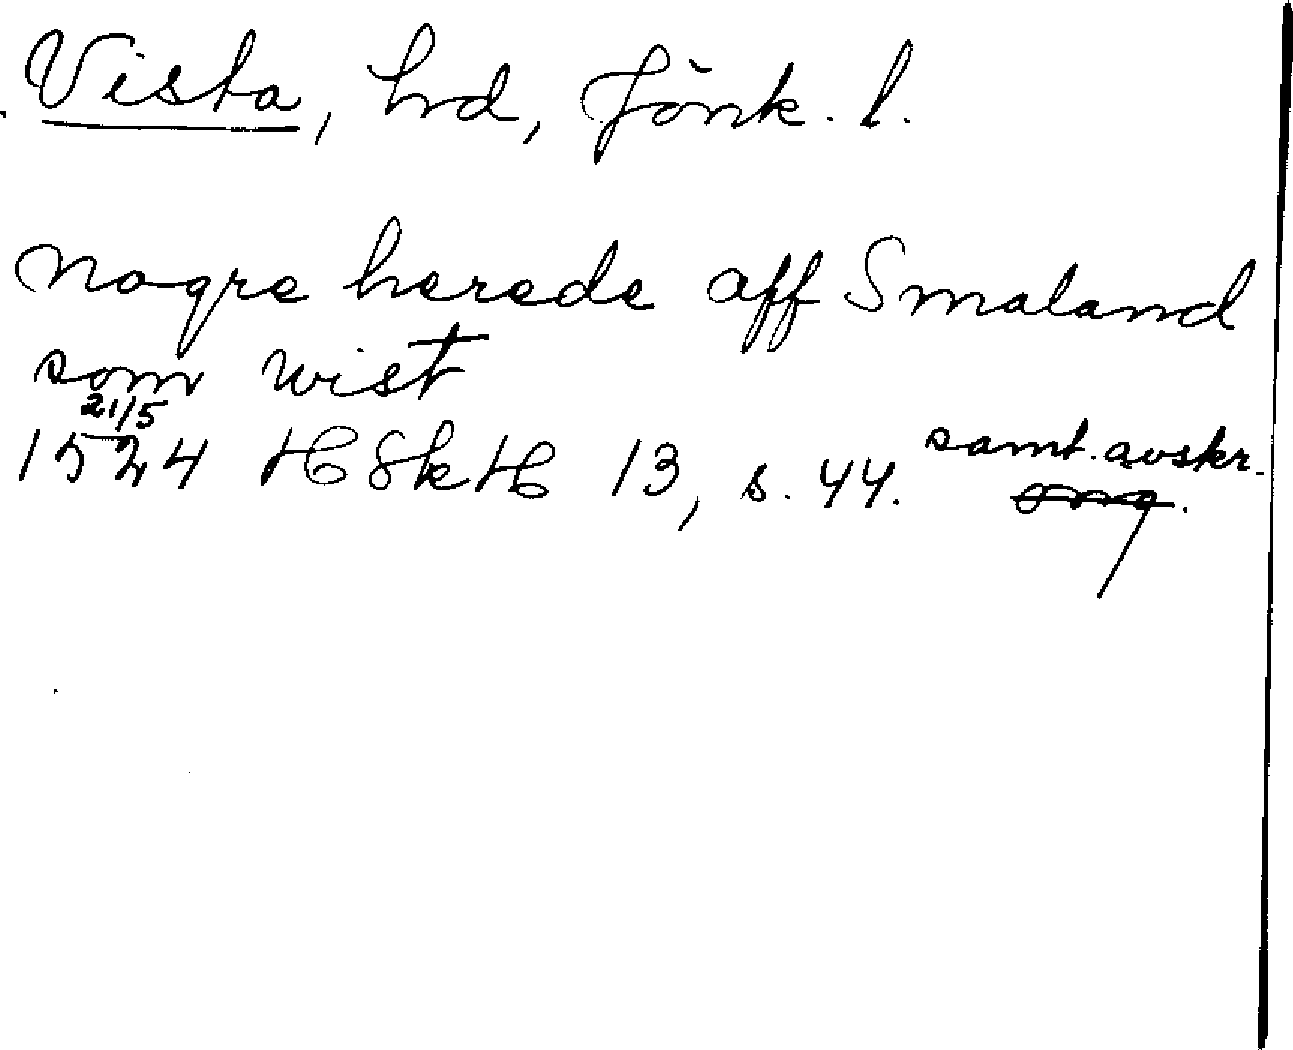 Vista, hrd, Jönk. l.
nogre herede aff Smaland
som wist
21/5
1524 HSkH 13, s. 44. samt. avskr.